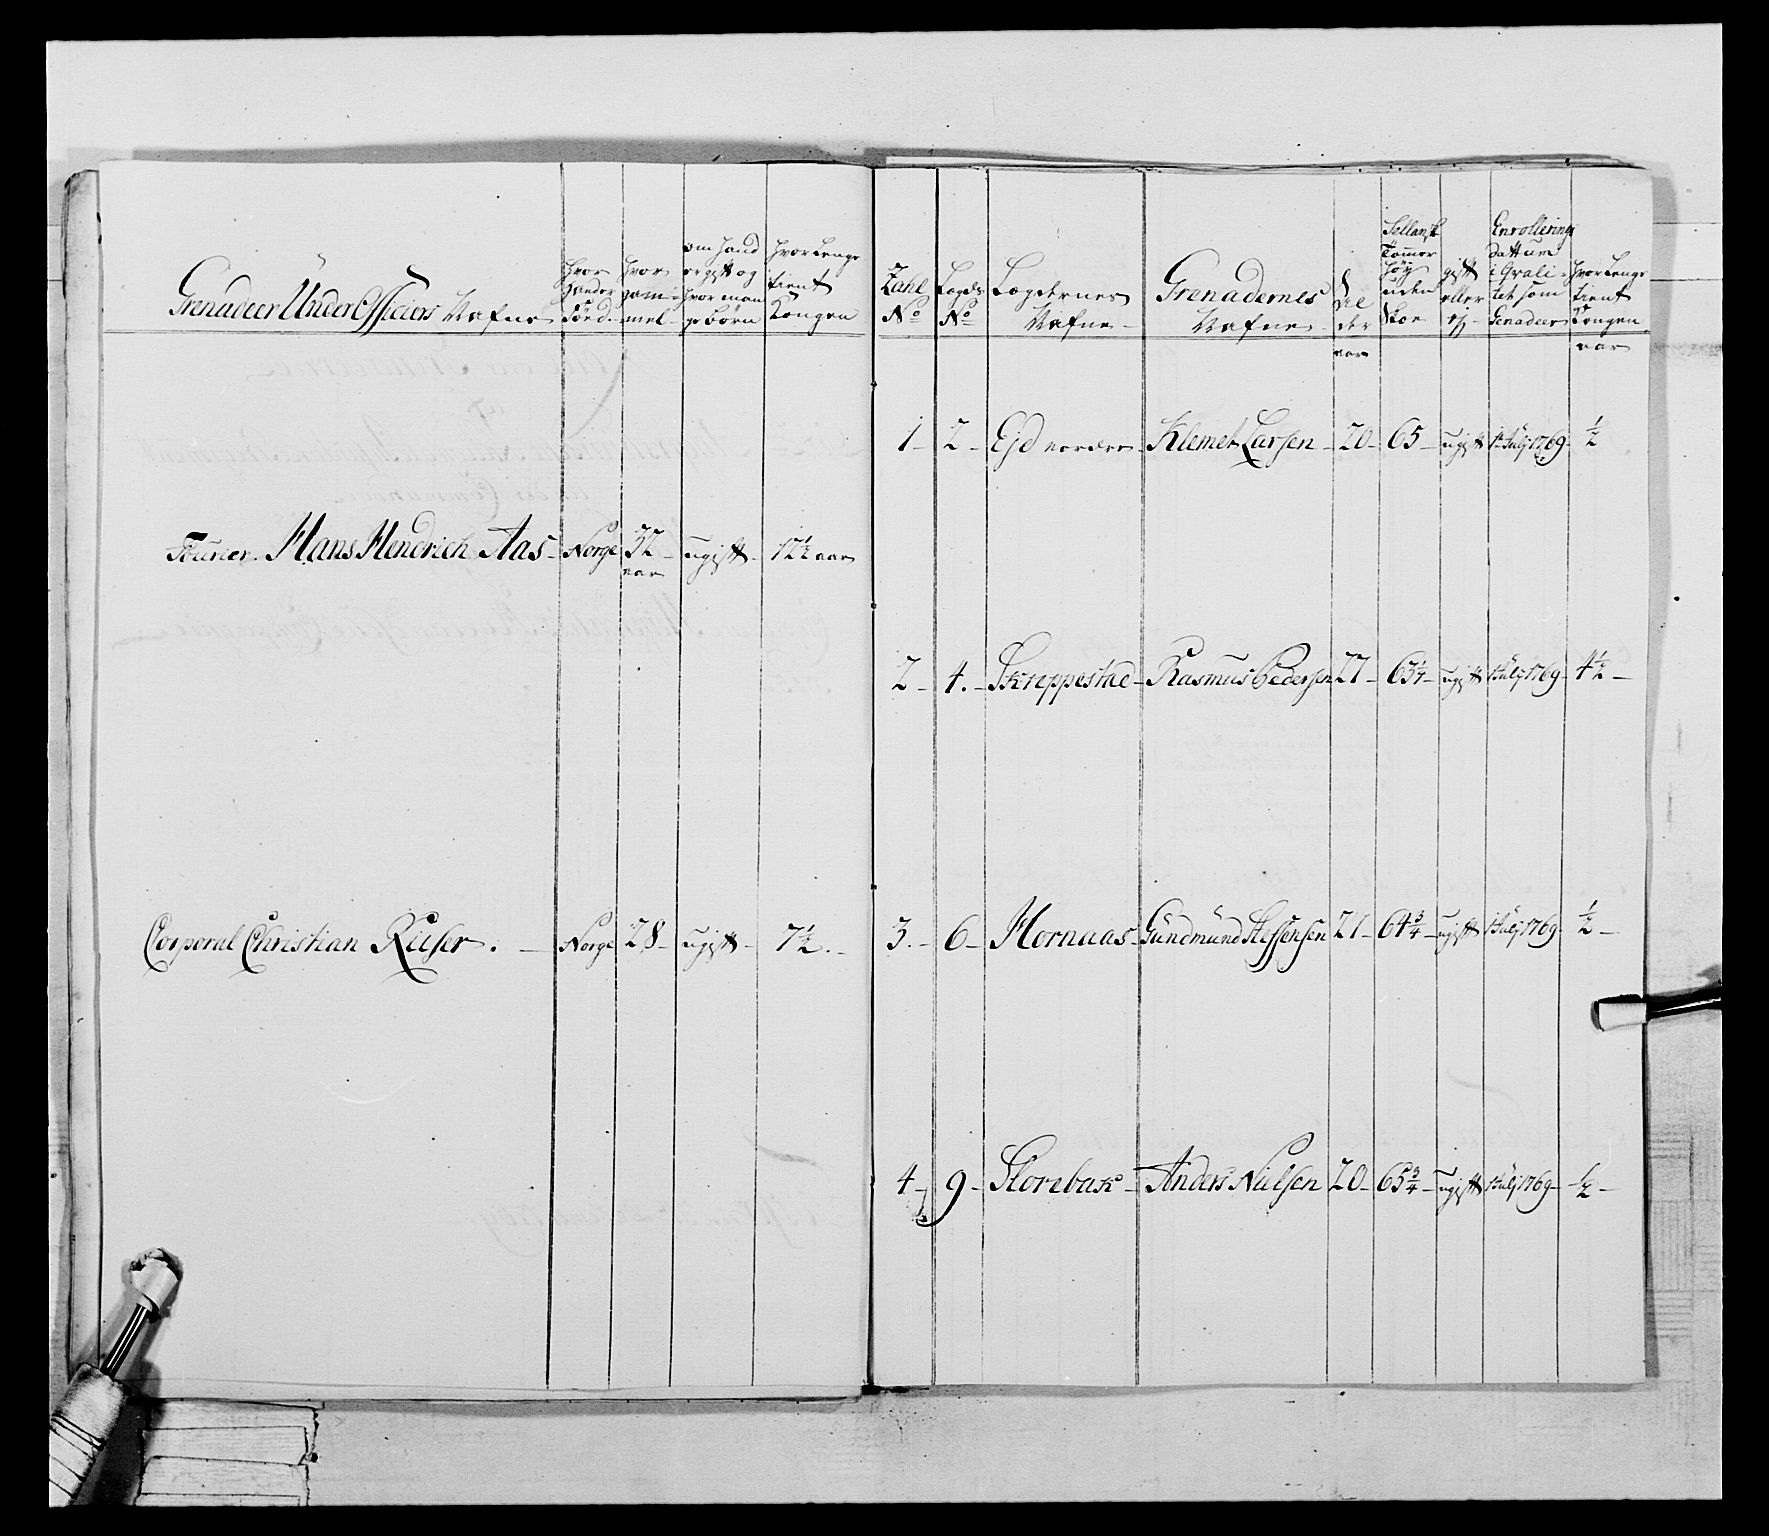 Grenadeer Under Officiers Nafne
Hvor
hander
Föed.
hvor
gam-
mel
om hand
er gift og
hvor man
ge børn
hvor lenge
tient
Kongen
Fourier. Hans Hendrich Aas - Norge 32 ugift - 12½ aar
aar
Corporal Christian Rieser. - Norge 28 - ugift - 7½. -
Zahl
No
Lægds
No
Lægdernes
Nafne
Grenadernes
Nafne
Al
der
aar
Sellansk
Tommer
höy
uden
Skoe
gift
eller
ej
Enrollering
Dattum
i Qvali-
tet som
Genadeer
hvor lenge
tient
Kongen
aar
1 - 2 - Ejd nordre - Klemet Larsen - 20 - 65 - ugift 1te Julj 1769 - ½
2 - 4. - Skreppestad - Rasmus Pedersen 27 - 63¼ - ugift 1 Julj 1769 - 4½ -
3. - 6 - Hornaas - Gundmund Steffensen 21 - 64¾ - ugift 1 Julj 1769 - ½ -
4 - 9 - Storebak - Anders Nielsen 20 - 65¾ - ugift 1 Julj 1769 - ½ -